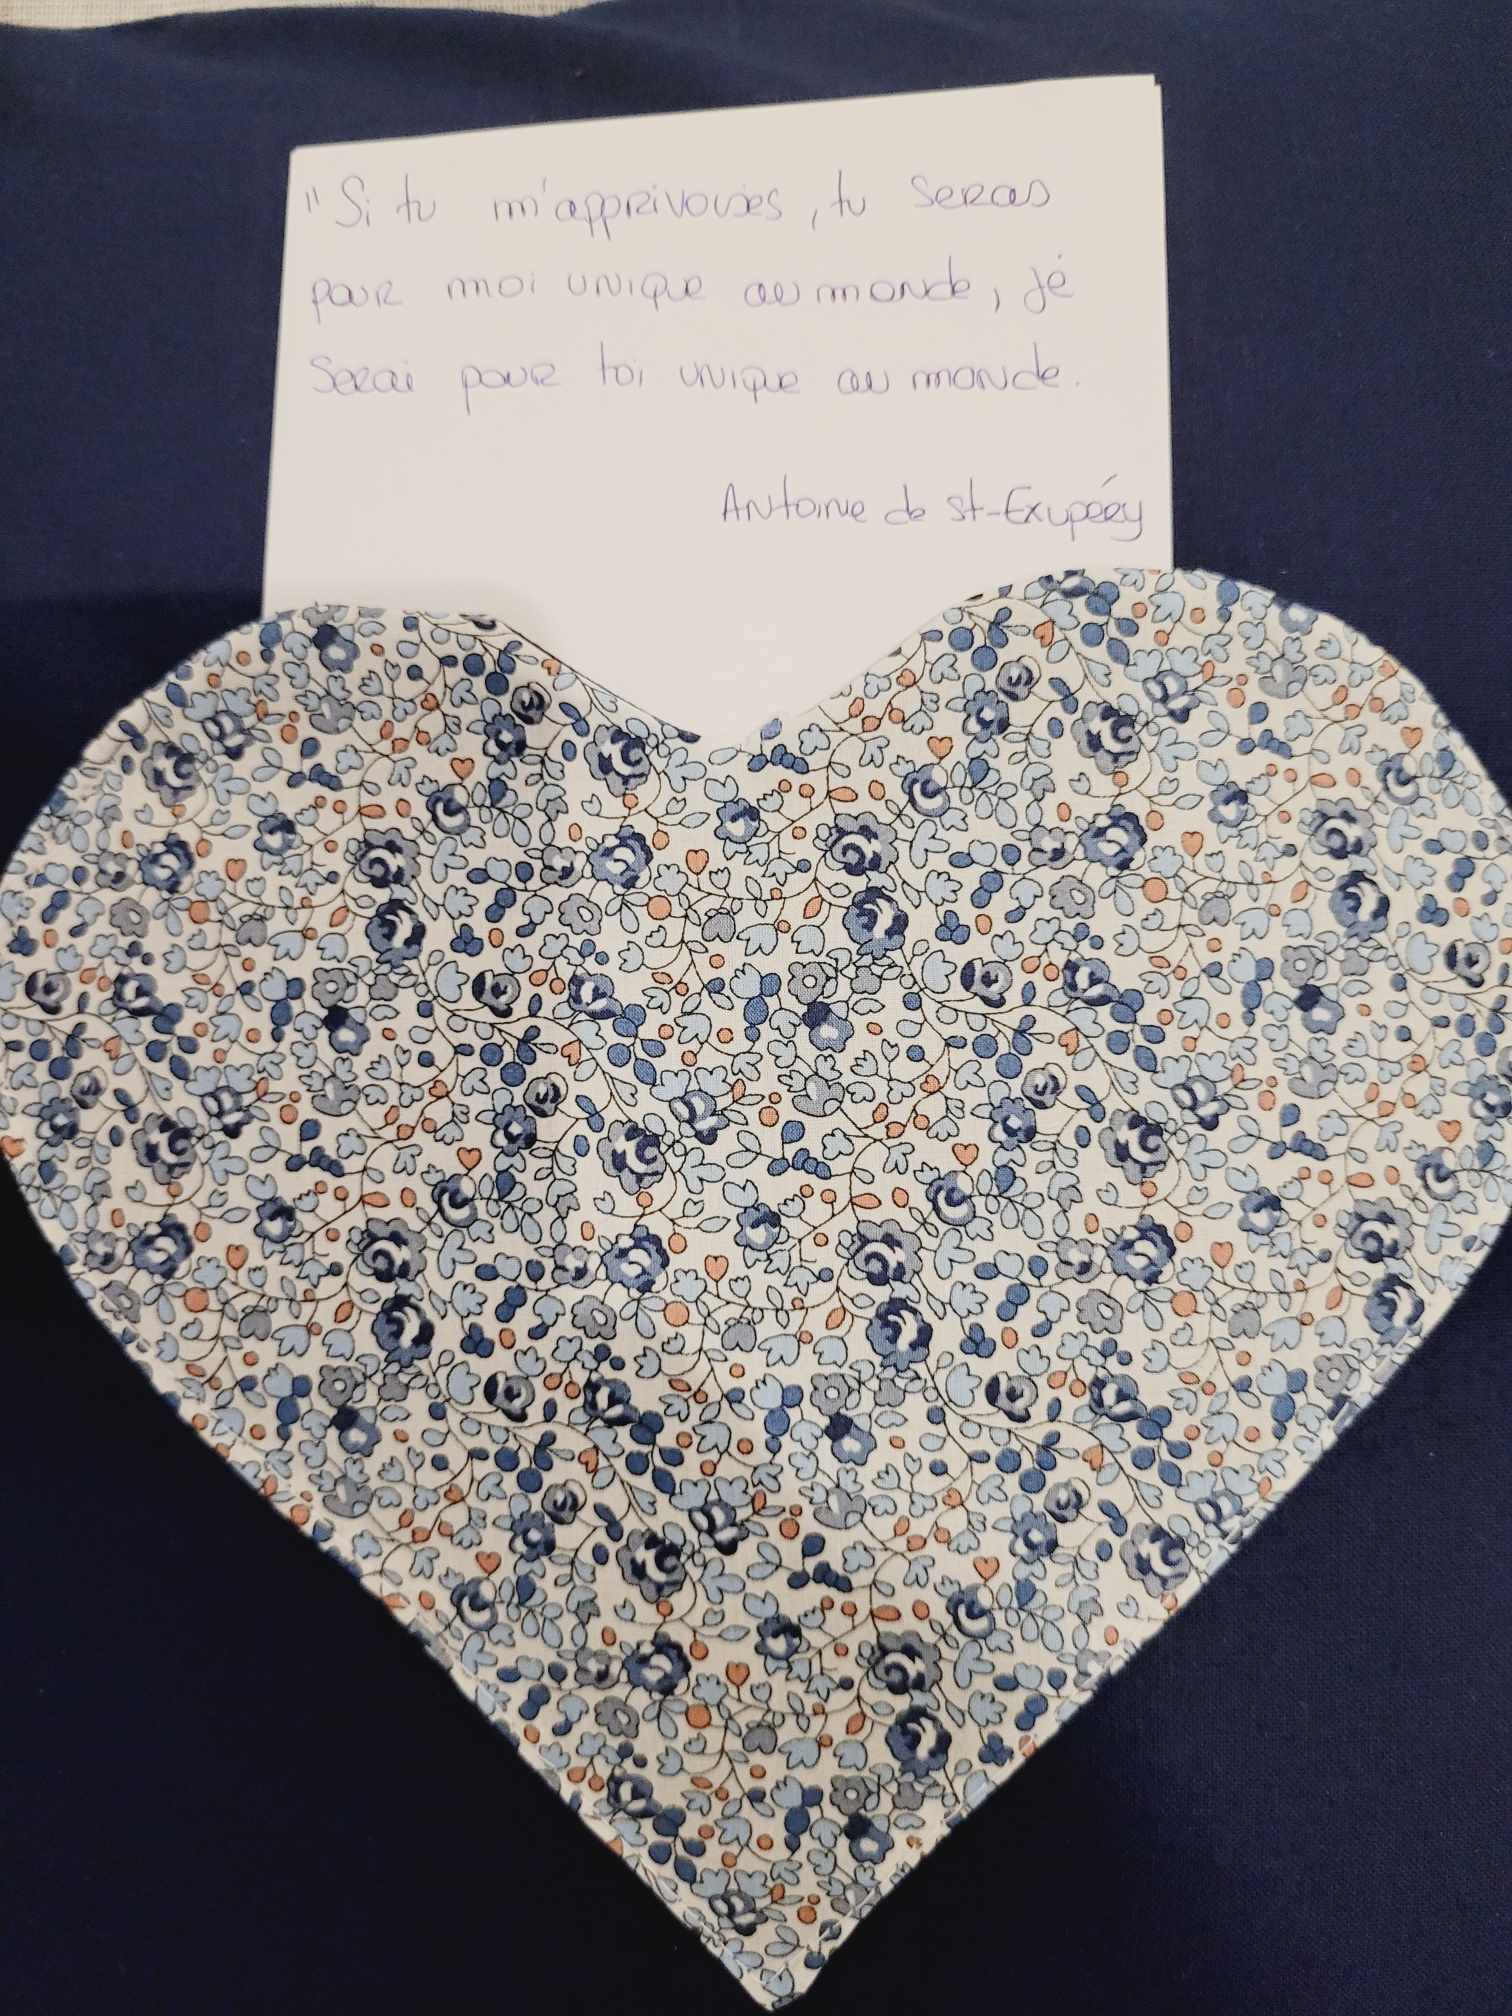 "Si tu m'apprivoises, tu seras
pour moi unique au monde, je
serai pour toi unique au monde.
Antoine de St-Exupéry